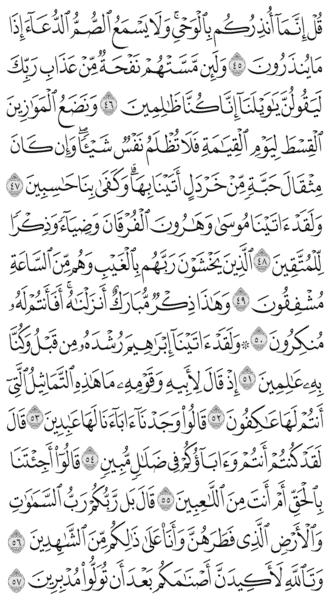 قُلْ إِنَّمَآ أُنذِرُكُم بِٱلْوَحْىِ ۚ وَلَا يَسْمَعُ ٱلصُّمُّ ٱلدُّعَآءَ إِذَا
مَا يُنذَرُونَ ٤٥ وَلَئِن مَّسَّتْهُمْ نَفْحَةٌ مِّنْ عَذَابِ رَبِّكَ
لَيَقُولُنَّ يَٰوَيْلَنَآ إِنَّا كُنَّا ظَٰلِمِينَ ٤٦ وَنَضَعُ ٱلْمَوَٰزِينَ
ٱلْقِسْطَ لِيَوْمِ ٱلْقِيَٰمَةِ فَلَا تُظْلَمُ نَفْسٌ شَيْـًٔا ۖ وَإِن كَانَ
مِثْقَالَ حَبَّةٍ مِّنْ خَرْدَلٍ أَتَيْنَا بِهَا ۗ وَكَفَىٰ بِنَا حَٰسِبِينَ ٤٧
وَلَقَدْ ءَاتَيْنَا مُوسَىٰ وَهَٰرُونَ ٱلْفُرْقَانَ وَضِيَآءً وَذِكْرًا
لِّلْمُتَّقِينَ ٤٨ ٱلَّذِينَ يَخْشَوْنَ رَبَّهُم بِٱلْغَيْبِ وَهُم مِّنَ ٱلسَّاعَةِ
مُشْفِقُونَ ٤٩ وَهَٰذَا ذِكْرٌ مُّبَارَكٌ أَنزَلْنَٰهُ ۚ أَفَأَنتُمْ لَهُۥ
مُنكِرُونَ ٥٠ ۞ وَلَقَدْ ءَاتَيْنَآ إِبْرَٰهِيمَ رُشْدَهُۥ مِن قَبْلُ وَكُنَّا
بِهِۦ عَٰلِمِينَ ٥١ إِذْ قَالَ لِأَبِيهِ وَقَوْمِهِۦ مَا هَٰذِهِ ٱلتَّمَاثِيلُ ٱلَّتِىٓ
أَنتُمْ لَهَا عَٰكِفُونَ ٥٢ قَالُوا۟ وَجَدْنَآ ءَابَآءَنَا لَهَا عَٰبِدِينَ ٥٣ قَالَ
لَقَدْ كُنتُمْ أَنتُمْ وَءَابَآؤُكُمْ فِى ضَلَٰلٍ مُّبِينٍ ٥٤ قَالُوٓا۟ أَجِئْتَنَا
بِٱلْحَقِّ أَمْ أَنتَ مِنَ ٱللَّٰعِبِينَ ٥٥ قَالَ بَل رَّبُّكُمْ رَبُّ ٱلسَّمَٰوَٰتِ
وَٱلْأَرْضِ ٱلَّذِى فَطَرَهُنَّ وَأَنَا۠ عَلَىٰ ذَٰلِكُم مِّنَ ٱلشَّٰهِدِينَ ٥٦
وَتَٱللَّهِ لَأَكِيدَنَّ أَصْنَٰمَكُم بَعْدَ أَن تُوَلُّوا۟ مُدْبِرِينَ ٥٧